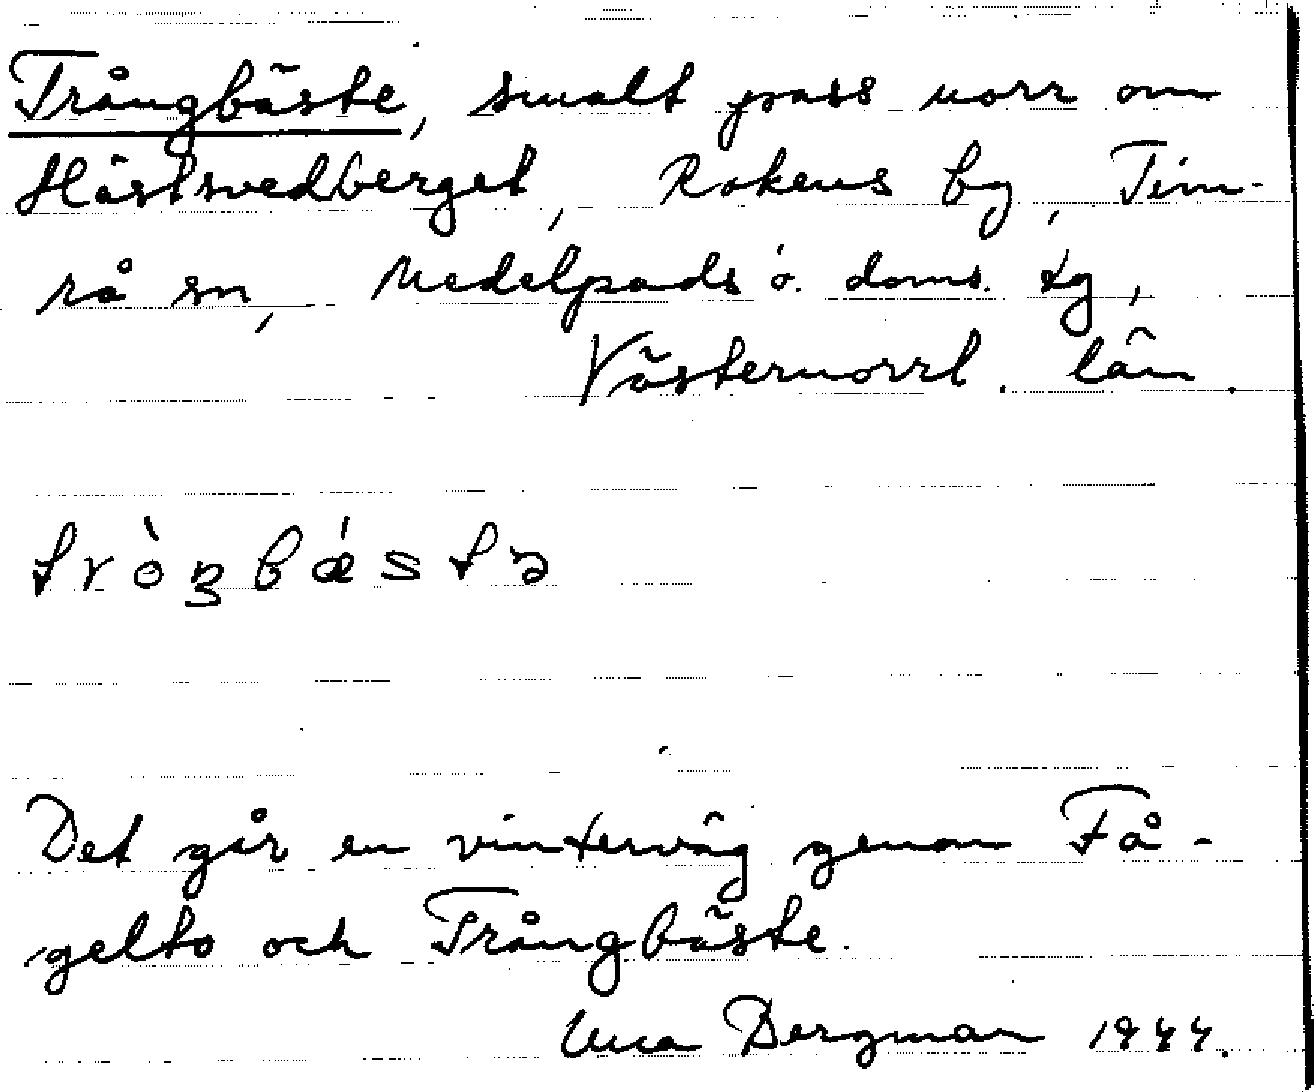 Trångbäste, smalt pass norr om
Hästsvedberget, Rokens by, Tim-
rå sn, Medelpads ö. doms. tg,
Västernorrl. län.
tròŋbǽstə
Det går en vinterväg genom Få-
gelto och Trångbäste.
Bergman 1944.